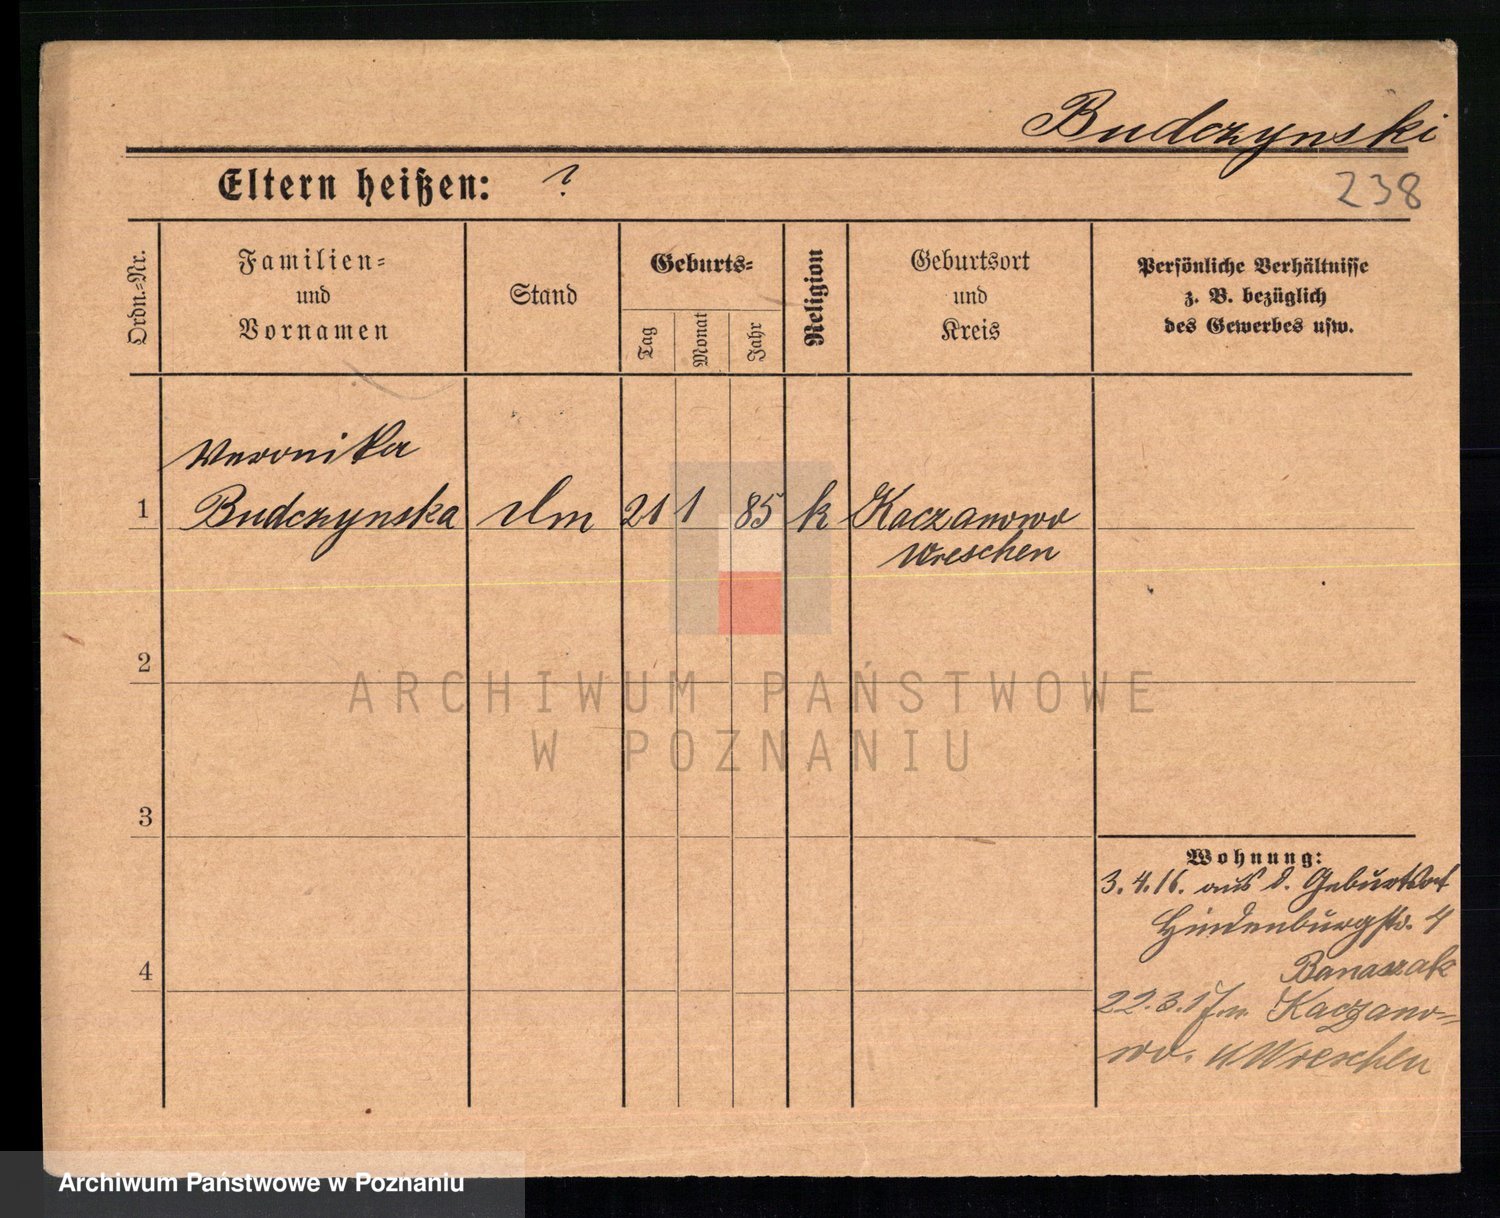 Budczynski
Eltern heißen: ?
238
Ordn.-Nr.
Familien-
und
Vornamen
Stand
Geburts-
Tag
Monat
Jahr
Religion
Geburtsort
und
Kreis
Persönliche Verhältnisse
z. B. bezüglich
des Gewerbes usw.
Veronika
1 Budczynska 21 1 85 k Kaczanowo
Wreschen
2
ARCHIWUM PAŃSTWOWE
W POZNANIU
3
Wohnung:
3.4.16. aus d. Geburtsort
Hindenburgstr. 4
Banaszak
4
22.3.17 n. Kaczano-
wo. Wreschen
Archiwum Państwowe w Poznaniu